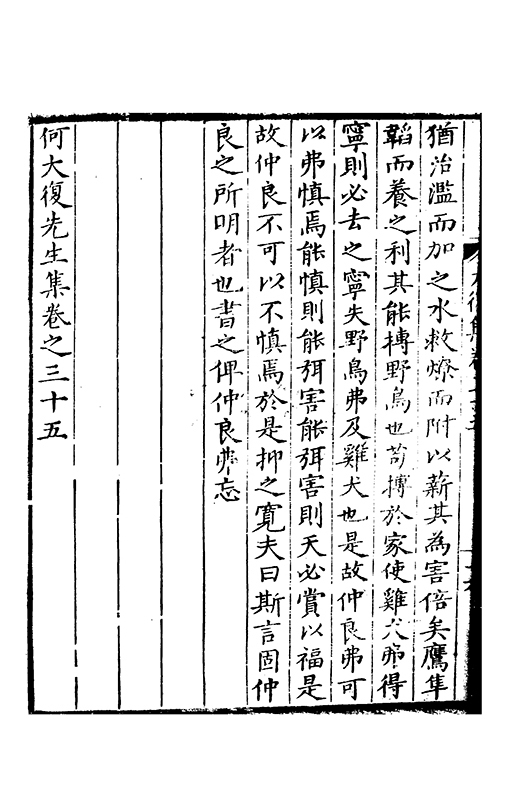 猶治濫而加之水救燎而附以薪其為害倍矣鷹隼
韜而養之利其能搏野鳥也苟搏於家使雞犬弗得
寧則必去之寧失野鳥弗及雞犬也是故仲良弗可
以弗慎焉能慎則能弭害能弭害則天必賞以福是
故仲良不可以不慎焉於是抑之寬夫曰斯言固仲
良之所明者也書之俾仲良弗忘
何大復先生集卷之三十五